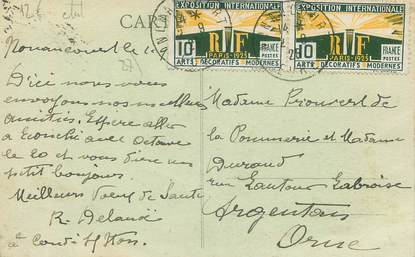 CARTE
EXPOSITION INTERNATIONALE
EXPOSITION INTERNATIONALE
10c RF FRANCE POSTES
10c RF FRANCE POSTES
PARIS-1925
PARIS-1925
ARTS DÉCORATIFS MODERNES
ARTS DÉCORATIFS MODERNES
Nonancourt le
D'ici nous vous
envoyons nos meilleures
amitiés. Espère aller
à avec Octave
le 20 et vous dire un
petit bonjour.
Meilleurs voeux de Santé
R. Delanoë
à
Madame de
la Pommerie et Madame
Durand
rue
Argentan
Orne